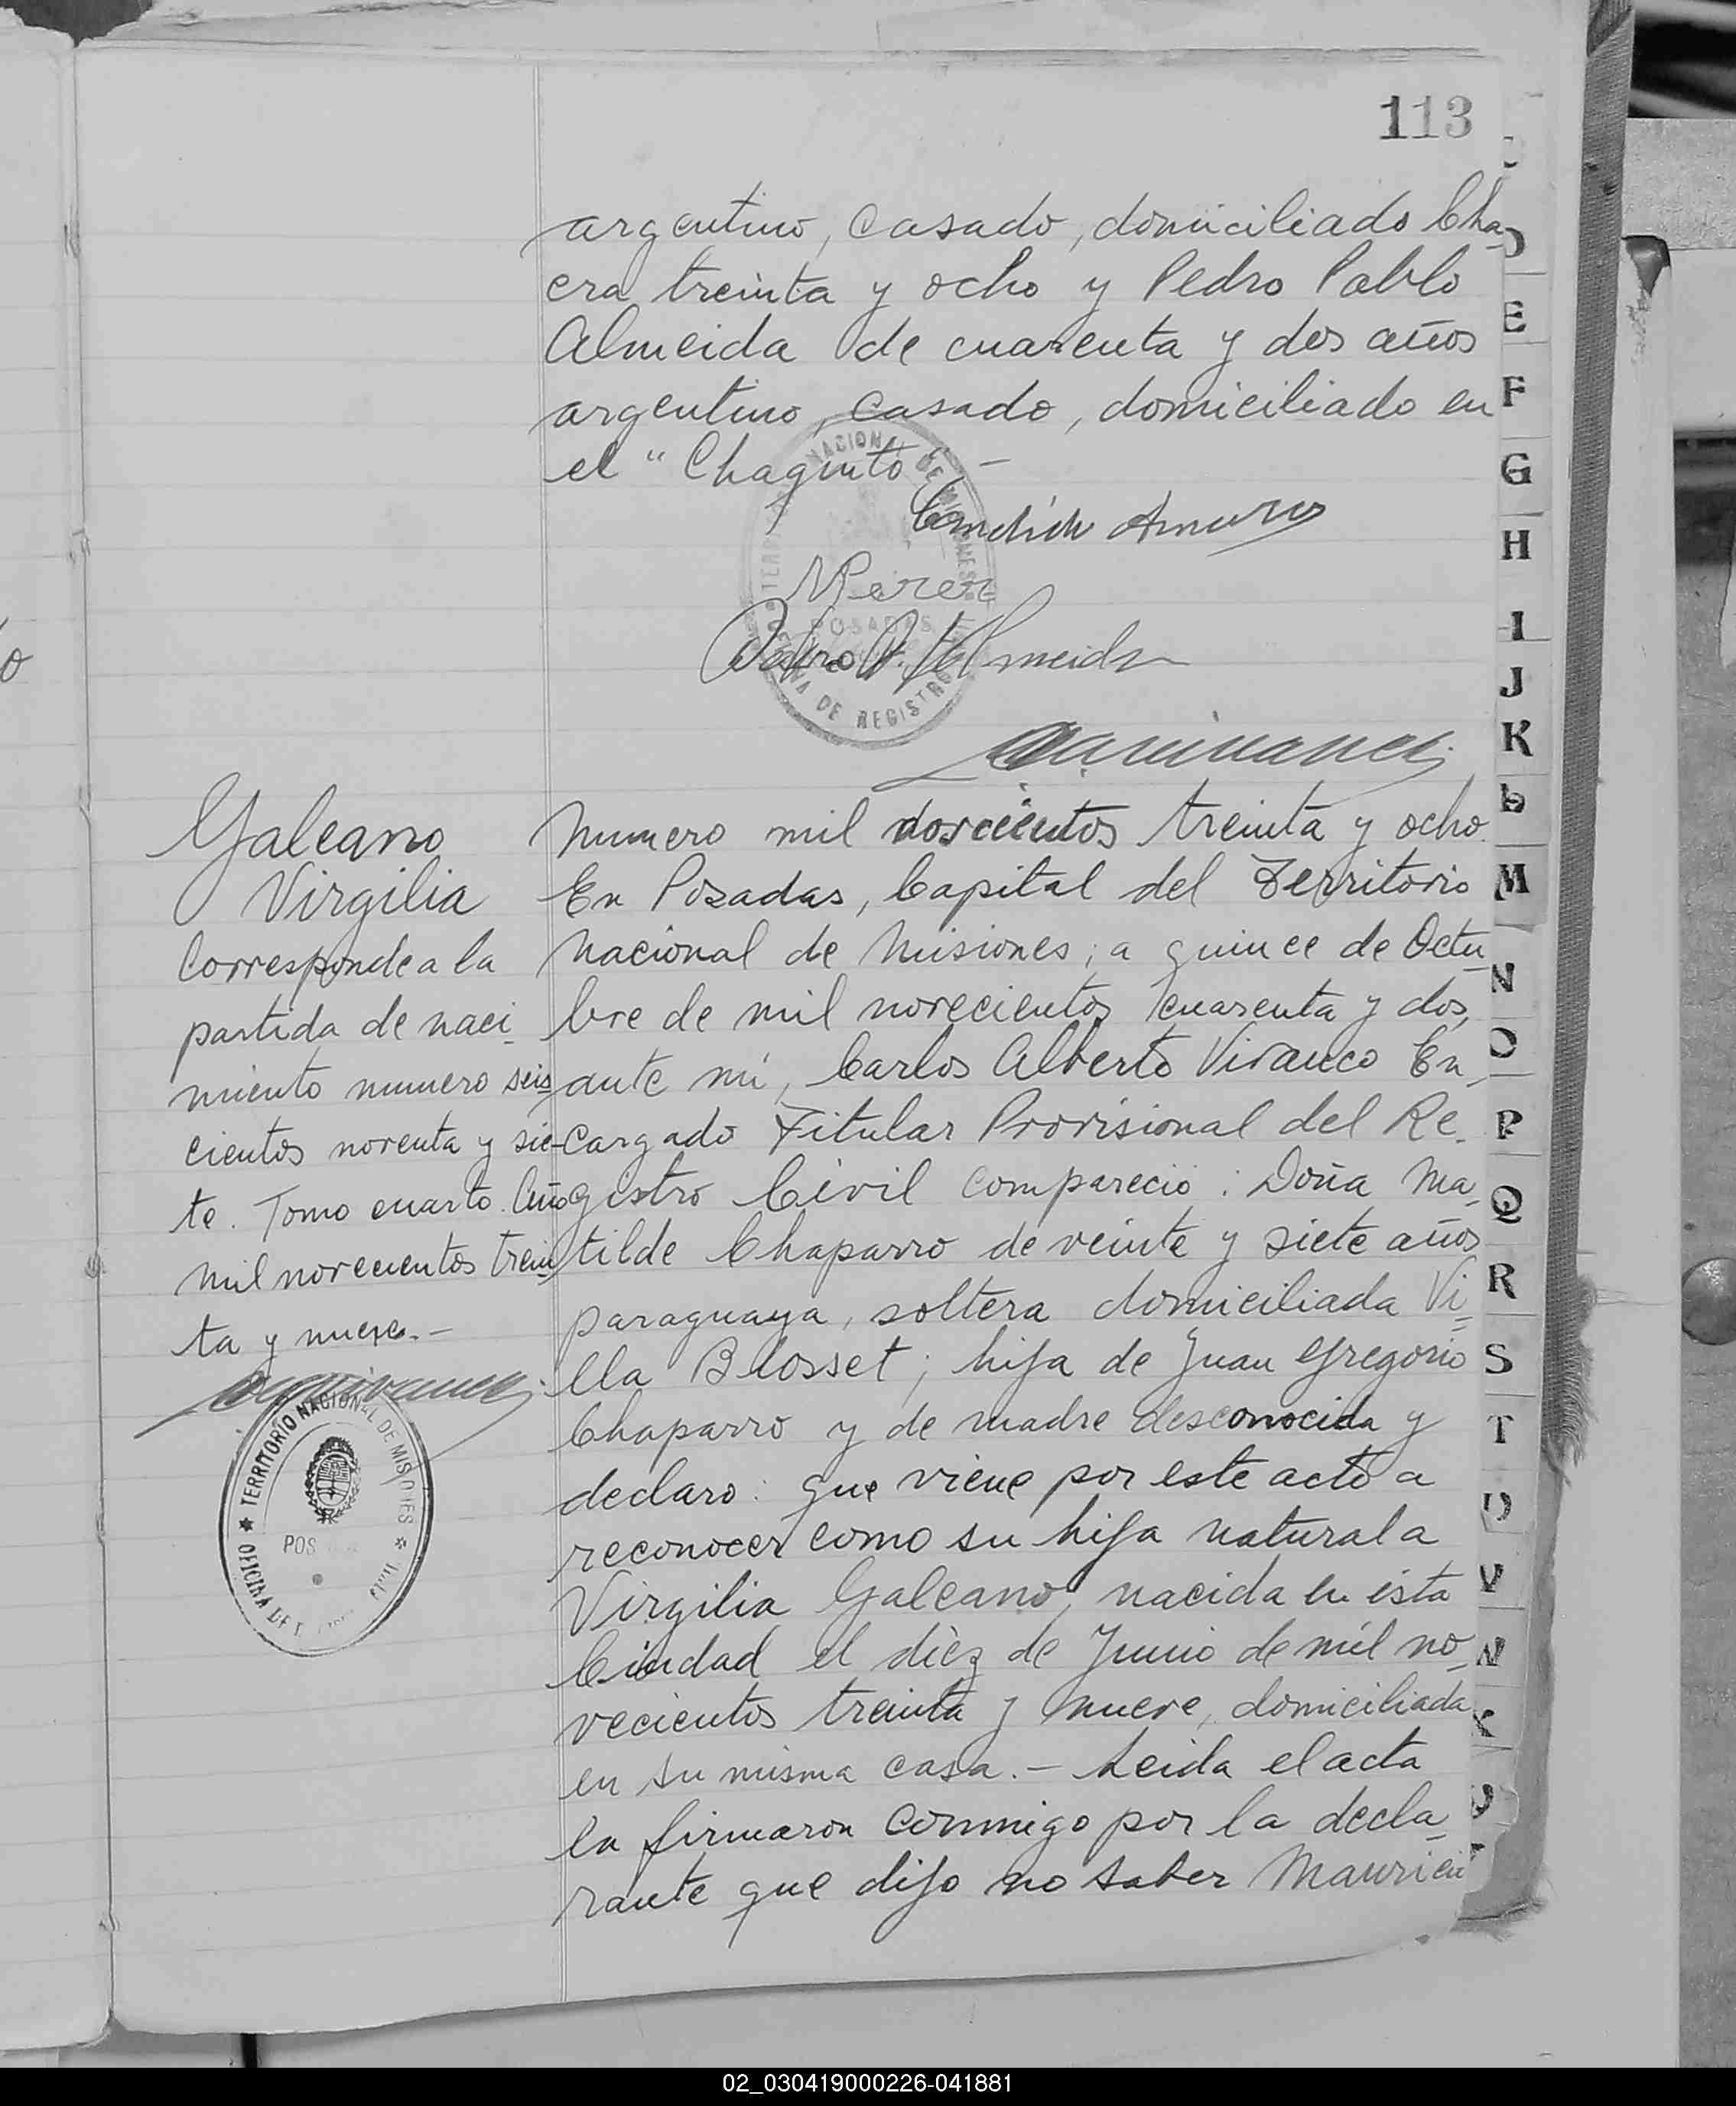 113
argentino, casado, domiciliado Cha-
cra treinta y ocho y Pedro Pablo
Almeida de cuarenta y dos años
argentino, casado, domiciliado en
el "Chaquito" –
NACIONAL DE MISIONES
POSADAS
DE REGISTRO
Pedro P. Almeida
Galeano
Virgilia
Corresponde a la
partida de naci-
miento numero seis-
cientos noventa y sie-
te. Tomo cuarto. Año
mil novecientos trein-
ta y nueve. –
TERRITORIO NACIONAL DE MISIONES
POS
OFICINA DE
Numero mil doscientos treinta y ocho.
En Posadas, Capital del Territorio
Nacional de Misiones; a quince de Octu-
bre de mil novecientos cuarenta y dos,
ante mi, Carlos Alberto Vivanco En-
cargado Titular Provisional del Re-
gistro Civil compareció: Doña Ma-
tilde Chaparro de veinte y siete años
paraguaya, soltera domiciliada Vi-
lla Blosset; hija de Juan Gregorio
Chaparro y de madre desconocida y
declaro: que viene por este acto a
reconocer como su hija natural a
Virgilia Galeano, nacida en ésta
Ciudad el diez de Junio de mil no-
vecientos treinta y nueve, domiciliada
en su misma casa. – Leida el acta
la firmaron conmigo por la decla-
rante que dijo no saber Mauricio
D
E
F
G
H
I
J
K
L
M
N
O
P
Q
R
S
T
U
V
02_030419000226-041881